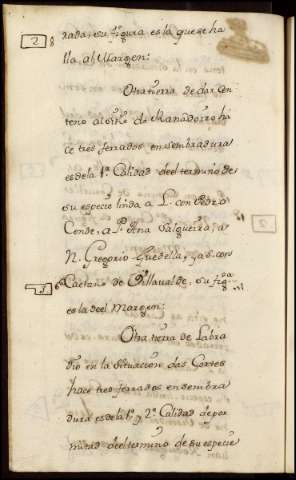 rada, su figura es la que se ha
lla, al Margen:
Otra tierra de dar Cen
teno al sitio do Ranadoiro ha
ce tres ferrados en sembradura
es de la 1ª Calidad deel termino de
su especie linda a L. con Pedro
Conde, a P. Ana Salgueira, a
N. Gregorio Guedella, y a S. con
Caetano de Villavalde, su figª
es la deel Margen:
Otra tierra de Labra
dio en la Situacion das Cortes
hace tres ferrados en sembra
dura es de la 1ª y 2ª Calidad de por
mitad deel termino de su especie